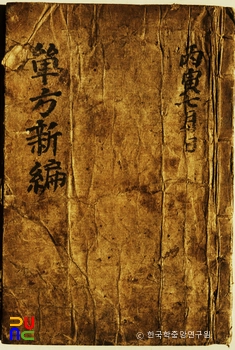 丙寅七月日
單方新編
© 한국학중앙연구원